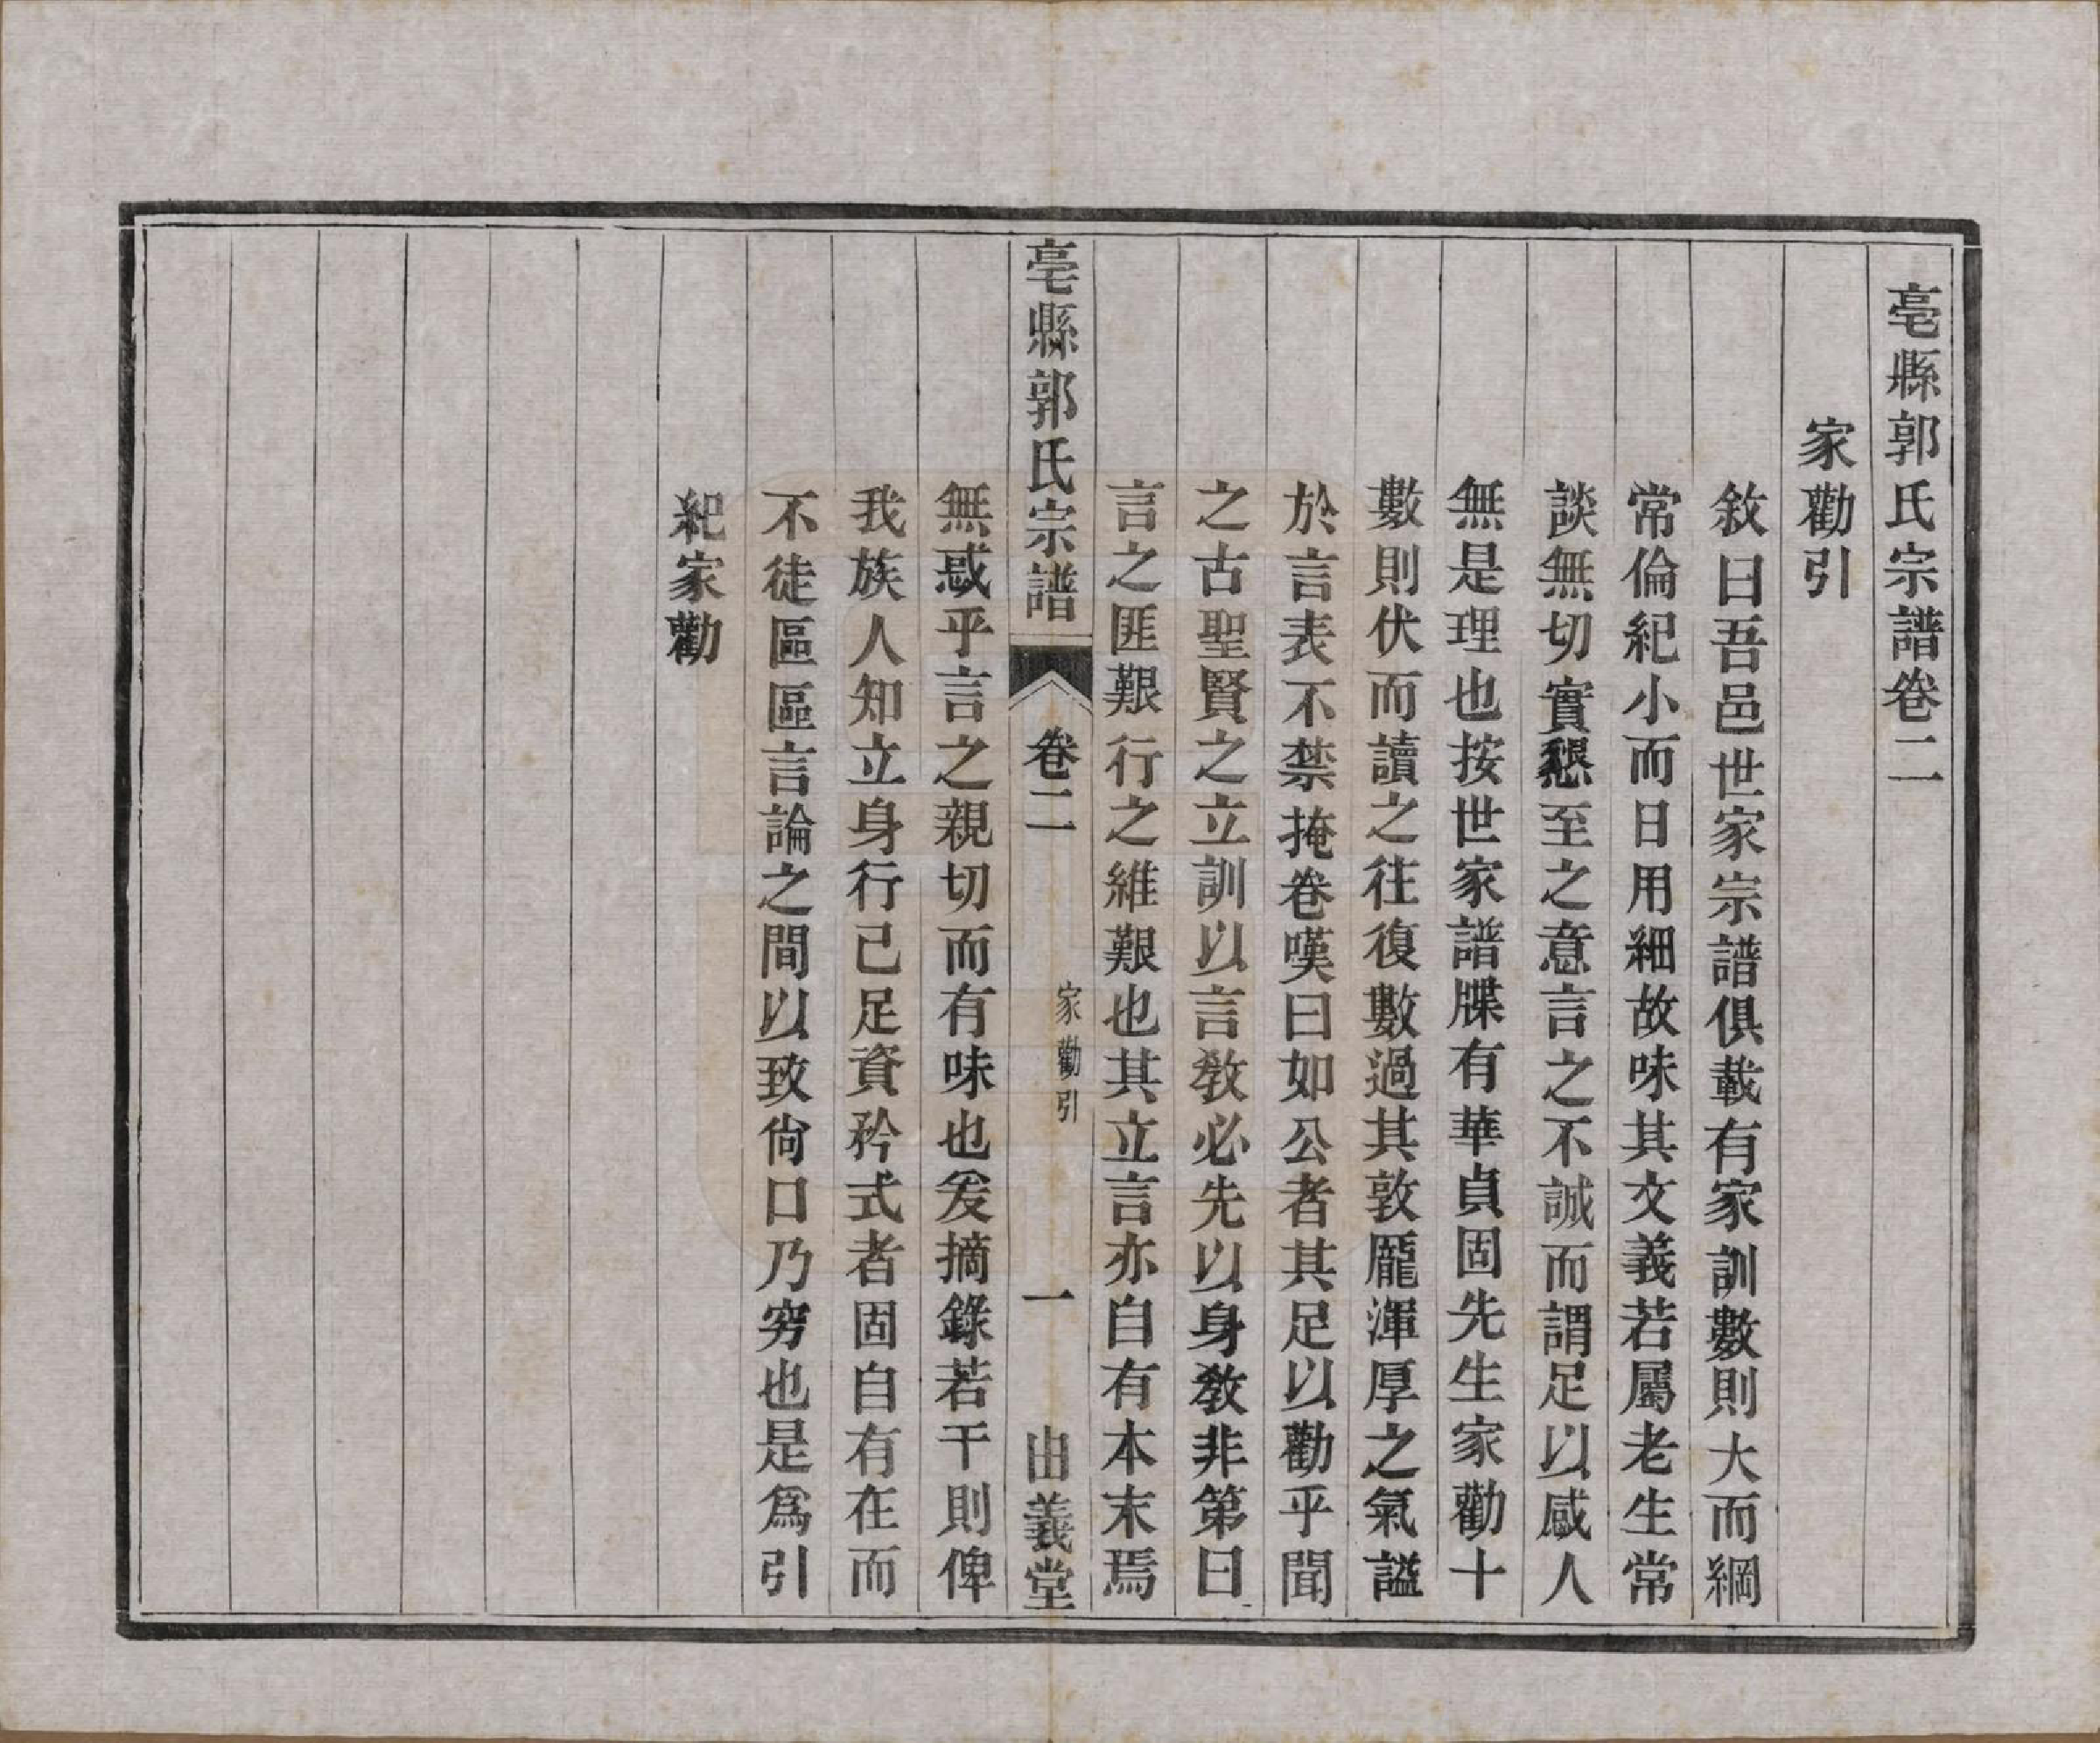 亳縣郭氏宗譜卷二
家勸引
敘曰吾邑世家宗譜俱載有家訓數則大而綱
常倫紀小而日用細故味其文義若屬老生常
談無切實懇至之意言之不誠而謂足以感人
無是理也按世家譜牒有華貞固先生家勸十
數則伏而讀之往復數過其敦龐渾厚之氣謚
於言表不禁掩卷嘆曰如公者其足以勸乎聞
之古聖賢之立訓以言教必先以身教非第曰
言之匪艱行之維艱也其立言亦自有本末焉
亳縣郭氏宗譜
卷二
家勸引
一
由義堂
無惑乎言之親切而有味也爰摘錄若干則俾
我族人知立身行己足資矜式者固自有在而
不徒區區言論之間以致尙口乃窮也是爲引
紀家勸